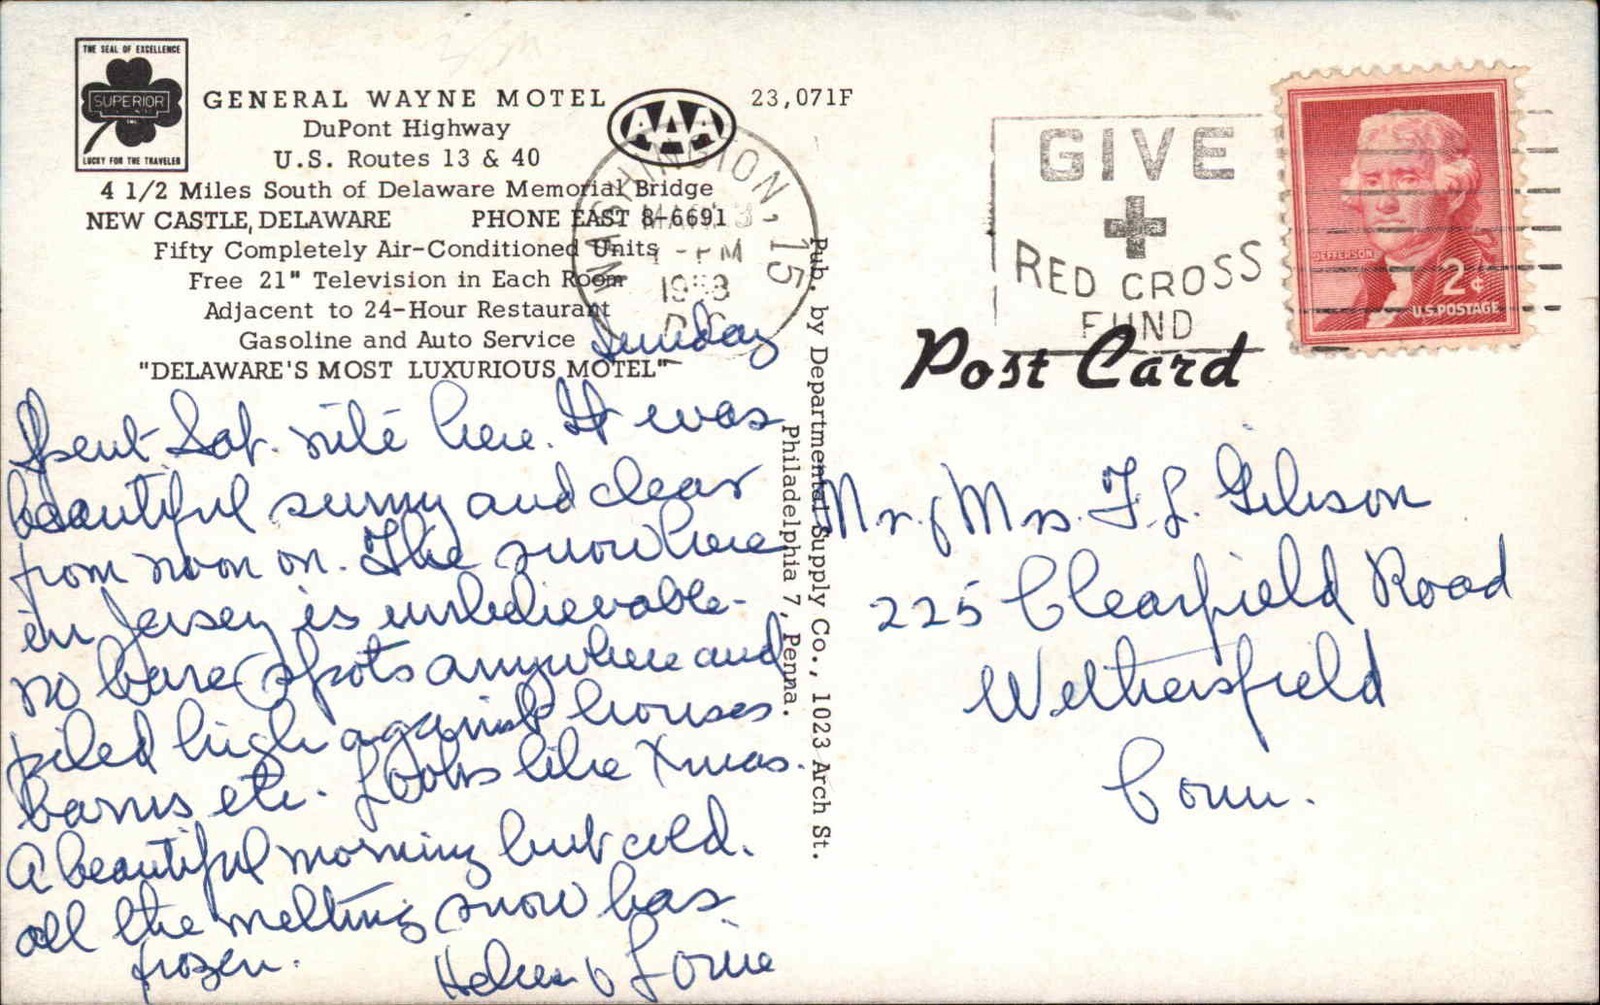 THE SEAL OF EXCELLENCE
SUPERIOR
INC.
LUCKY FOR THE TRAVELER
GENERAL WAYNE MOTEL
DuPont Highway
U.S. Routes 13 & 40
4 1/2 Miles South of Delaware Memorial Bridge
NEW CASTLE, DELAWARE PHONE EAST 8-6691
Fifty Completely Air-Conditioned Units
Free 21" Television in Each Room
Adjacent to 24-Hour Restaurant
Gasoline and Auto Service
"DELAWARE'S MOST LUXURIOUS MOTEL"
AAA
23,071F
WASHINGTON, 15
PM
D.C.
GIVE
RED CROSS
FUND
JEFFERSON
2¢
U.S. POSTAGE
Post Card
Pub. by Departmental Supply Co., 1023 Arch St.
Philadelphia 7, Penna.
Sunday
Spent Sat. nite here. It was
beautiful sunny and clear
from noon on. The snow here
in Jersey is unbelievable-
no bare spots anywhere and
piled high against houses
barns etc. Looks like Xmas.
A beautiful morning but cold.
all the melting snow has
frozen.
Helen & Lorne
Mr. & Mrs. F. L. Gibson
225 Clearfield Road
Wethersfield
Conn.